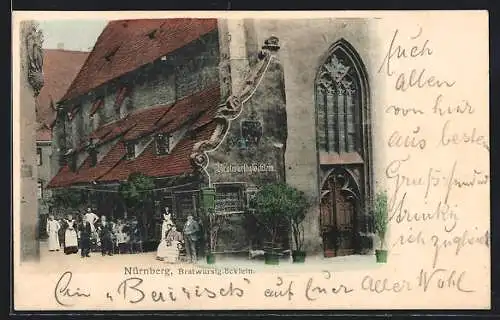 Bratwurstglöcklein
Nürnberg, Bratwurstglöcklein.
Euch
Allen
von hier
aus besten
Gruß, und
trink
ich zugleich
Ein „Bairisch" auf Euer Aller Wohl